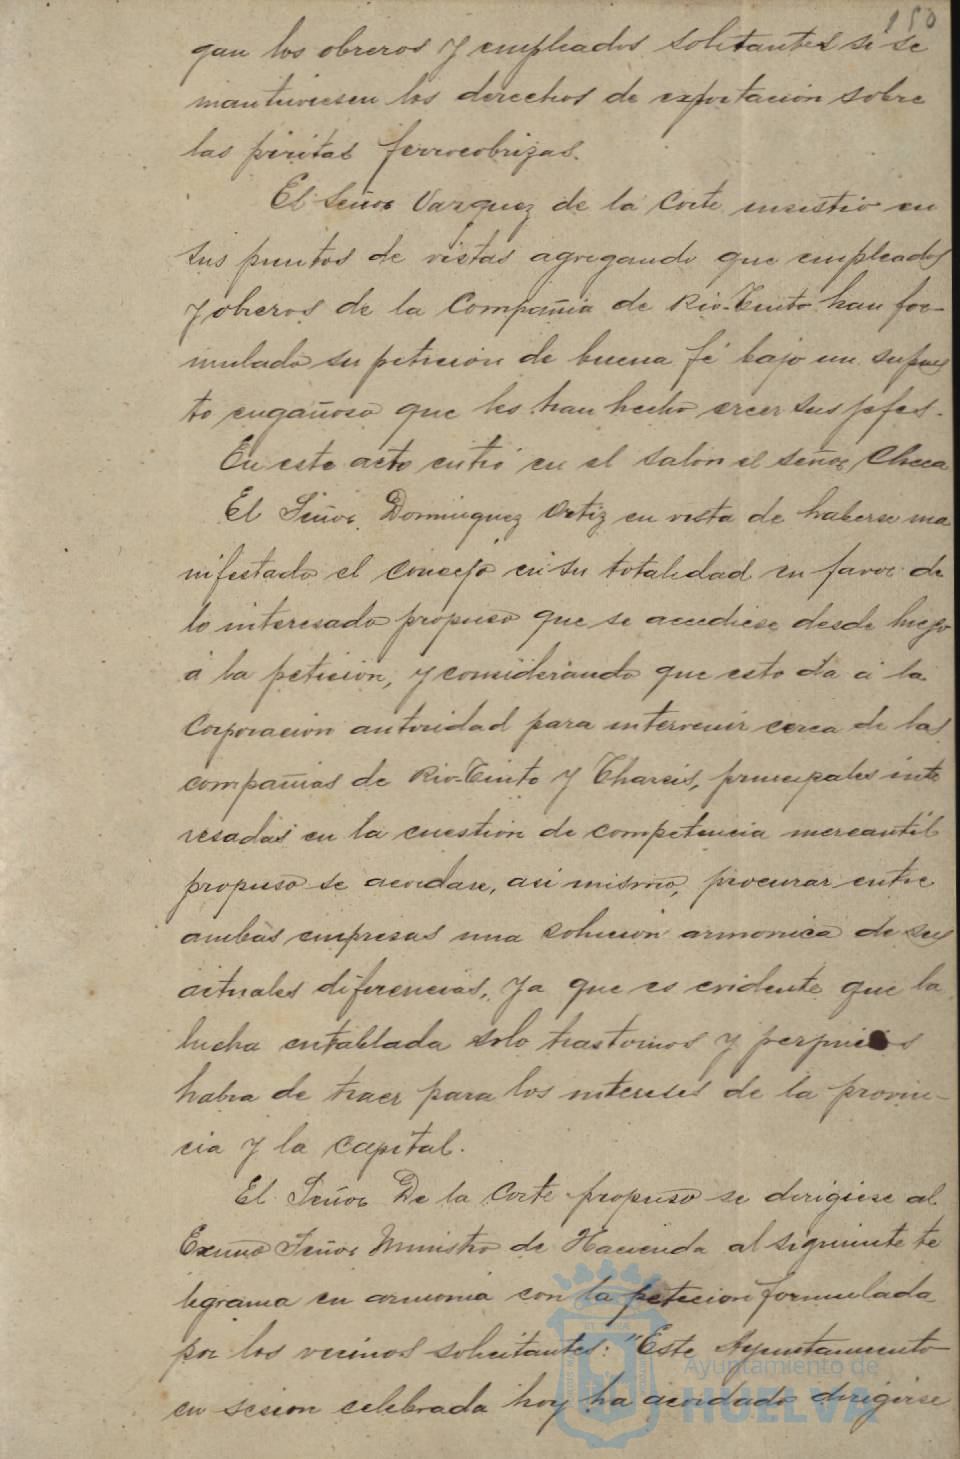 150
gan los obreros y empleados solitantes si se
mantuviesen los derechos de exportacion sobre
las piritas ferrocobrizas.
El Señor Vazquez de la Corte insistió en
sus puntos de vistas agregando que empleados
y obreros de la Compañia de Rio-Tinto han for-
mulado su peticion de buena fé bajo un supues
to engañoso que les han hecho creer sus jefes.
En este acto entró en el salon el señor Checa
El Señor Dominguez Ortiz en vista de haberse ma
nifestado el concejo en su totalidad en favor de
lo interesado propuso que se accediese desde luego
á la peticion, y considerando que esto da á la
Corporacion autoridad para intervenir cerca de las
compañias de Rio-Tinto y Tharsis, principales inte
resadas en la cuestion de competencia mercantil
propuso se acordase, asi mismo, procurar entre
ambas empresas una solucion armonica de sus
actuales diferencias, ya que es evidente que la
lucha entablada solo trastornos y perjuicios
habra de traer para los intereses de la provin-
cia y la capital.
El Señor De la Corte propuso se dirigiese al
Excmo Señor Ministro de Hacienda al siguiente te
legrama en armonia con la peticion formulada
por los vecinos solicitantes: "Este Ayuntamiento
en sesion celebrada hoy ha acordado dirigirse
Ayuntamiento de
HUELVA